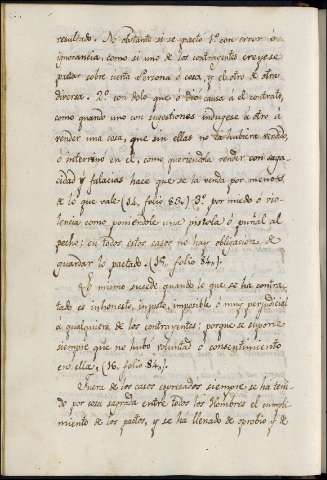 resultado. No obstante si se pacto 1º. con error ó
ignorancia, como si uno de los contrayentes creyese
pactar sobre cierta Persona ó cosa, y el otro de otra
diversa. 2º. con dolo que ó dio causa á el contrato,
como quando uno con sugestiones induyese á otro á
vender una cosa, que sin ellas no la hubiera vendido,
ó intervino en el, como queriendola vender con saga
cidad y falacias hace que se la venda por menos
de lo que vale (14. folio 83.) 3º. por miedo ó vio-
lencia como poniendole una pistola ó puñal al
pecho; en todos estos casos no hay obligacion de
guardar lo pactado. (15. folio 84.)
Lo mismo sucede quando lo que se ha contra
tado es inhonesto, injusto, imposible ó muy perjudicial
á qualquiera de los contrayentes; porque se supone
siempre que no hubo voluntad ó consentimiento
en ella, (16. folio 84.)
Fuera de los casos expresados siempre se ha teni
do por cosa sagrada entre todos los Hombres el cumpli
miento de los pactos, y se ha llenado de oprobio y de